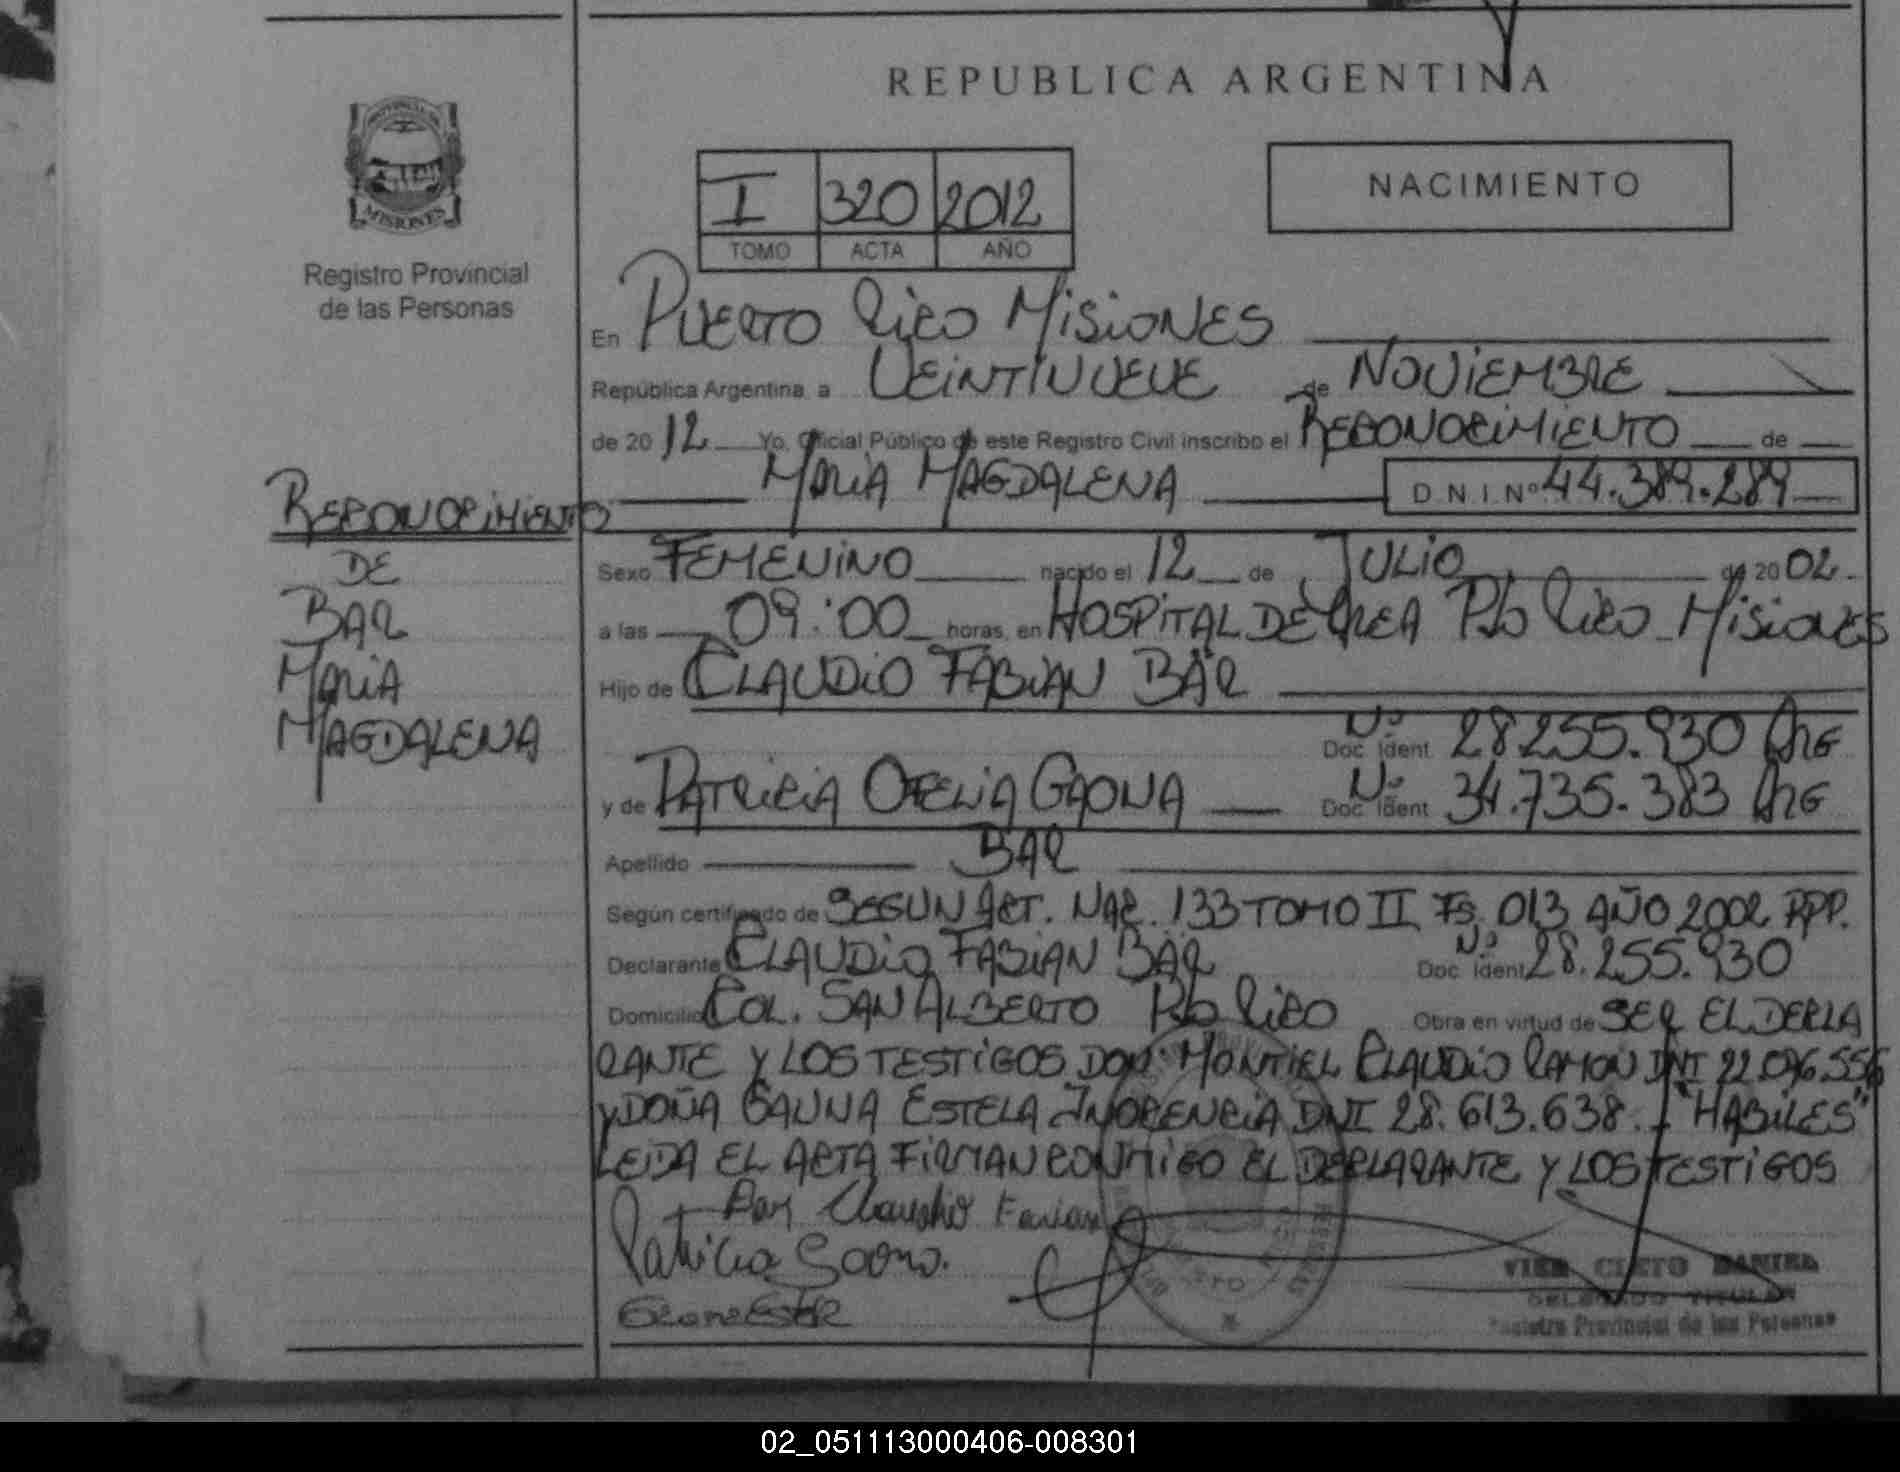 REPUBLICA ARGENTINA
PROVINCIA DE
MISIONES
Registro Provincial
de las Personas
I 320 2012
TOMO ACTA AÑO
NACIMIENTO
En PUERTO RICO MISIONES
República Argentina, a VEINTINUEVE de NOVIEMBRE
de 2012 Yo, Oficial Público de este Registro Civil inscribo el RECONOCIMIENTO de
MARIA MAGDALENA D N I Nº 44.389.289
RECONOCIMIENTO
DE
BAR
MARIA
MAGDALENA
Sexo FEMENINO nacido el 12 de JULIO de 2002.
a las 09:00 horas, en HOSPITAL DE AREA Pto RICO MISIONES
Hijo de CLAUDIO FABIAN BAR
Doc Ident Nº 28.255.930 ARG
y de PATRICIA OFELIA GAONA Doc Ident Nº 34.735.383 ARG
Apellido BAR
Según certificado de SEGUN ACT. NAC. 133 TOMO II FS. 013 AÑO 2002 RPP.
Declarante CLAUDIO FABIAN BAR Doc Ident Nº 28.255.930
Domicilio COL. SAN ALBERTO Pto RICO Obra en virtud de SER EL DECLA
RANTE Y LOS TESTIGOS DON: MONTIEL CLAUDIO RAMON DNI 22.096.556
Y DOÑA GAUNA ESTELA INOCENCIA DNI 28.613.638.- "HABILES"
LEIDA EL ACTA FIRMAN CONMIGO EL DECLARANTE Y LOS TESTIGOS
Bar Claudio Favian
Patricia Gaona.
DELEGADO TITULAR
Registro Provincial de las Personas
02_051113000406-008301